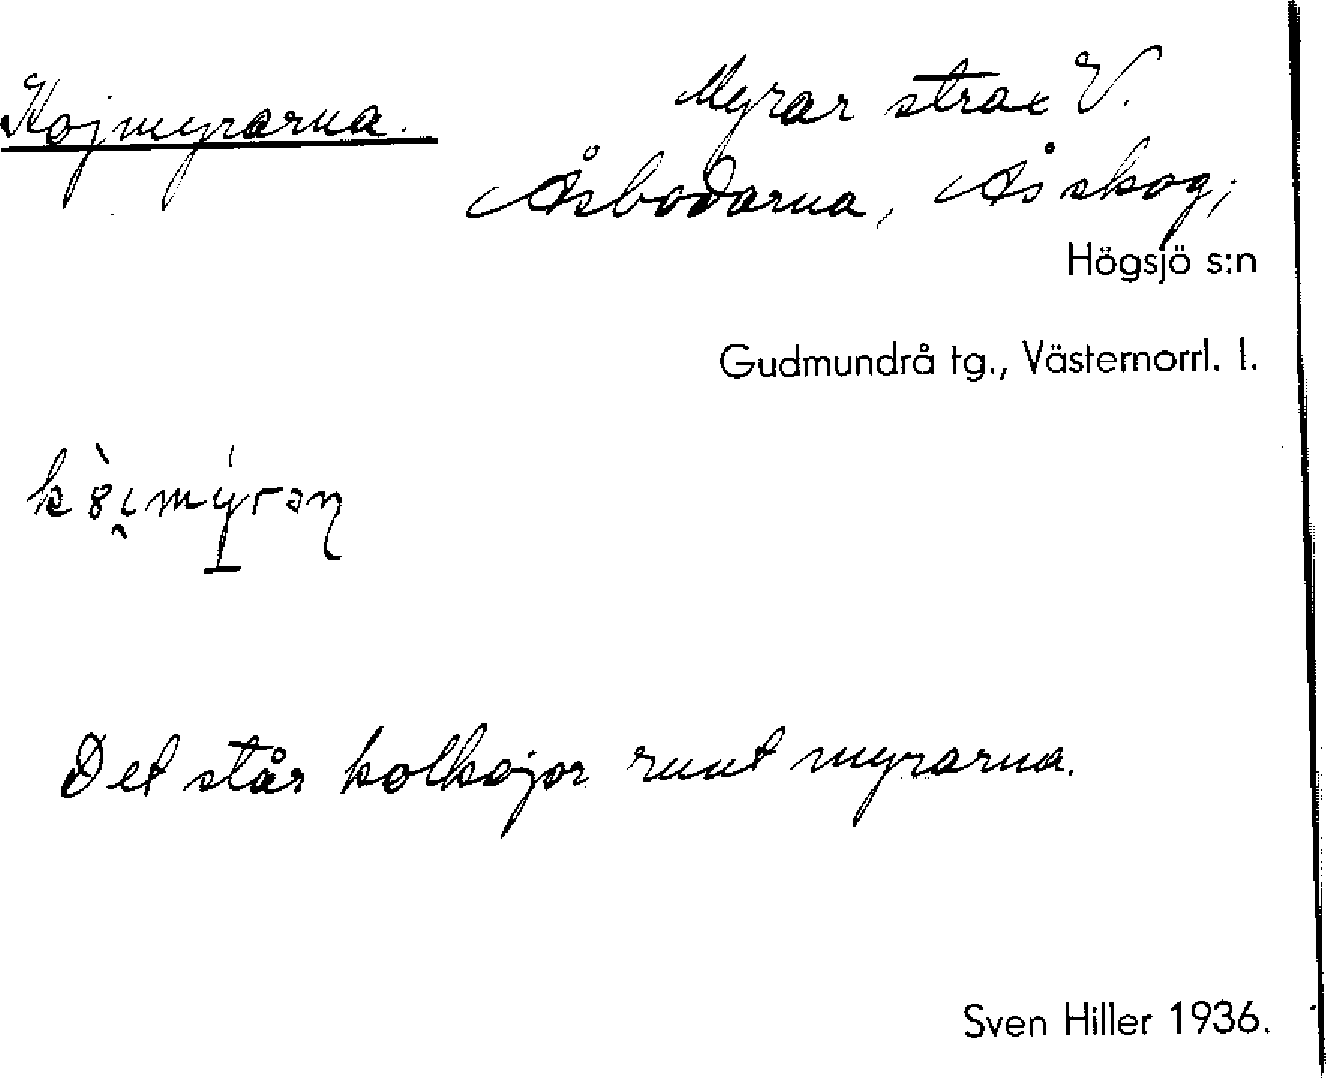 Kojmyrarna. Myrar strax V.
Åsbodarna, Ås skog,
Högsjö s:n
Gudmundrå tg., Västernorrl. l.
Det står kolkojor runt myrarna.
Sven Hiller 1936.